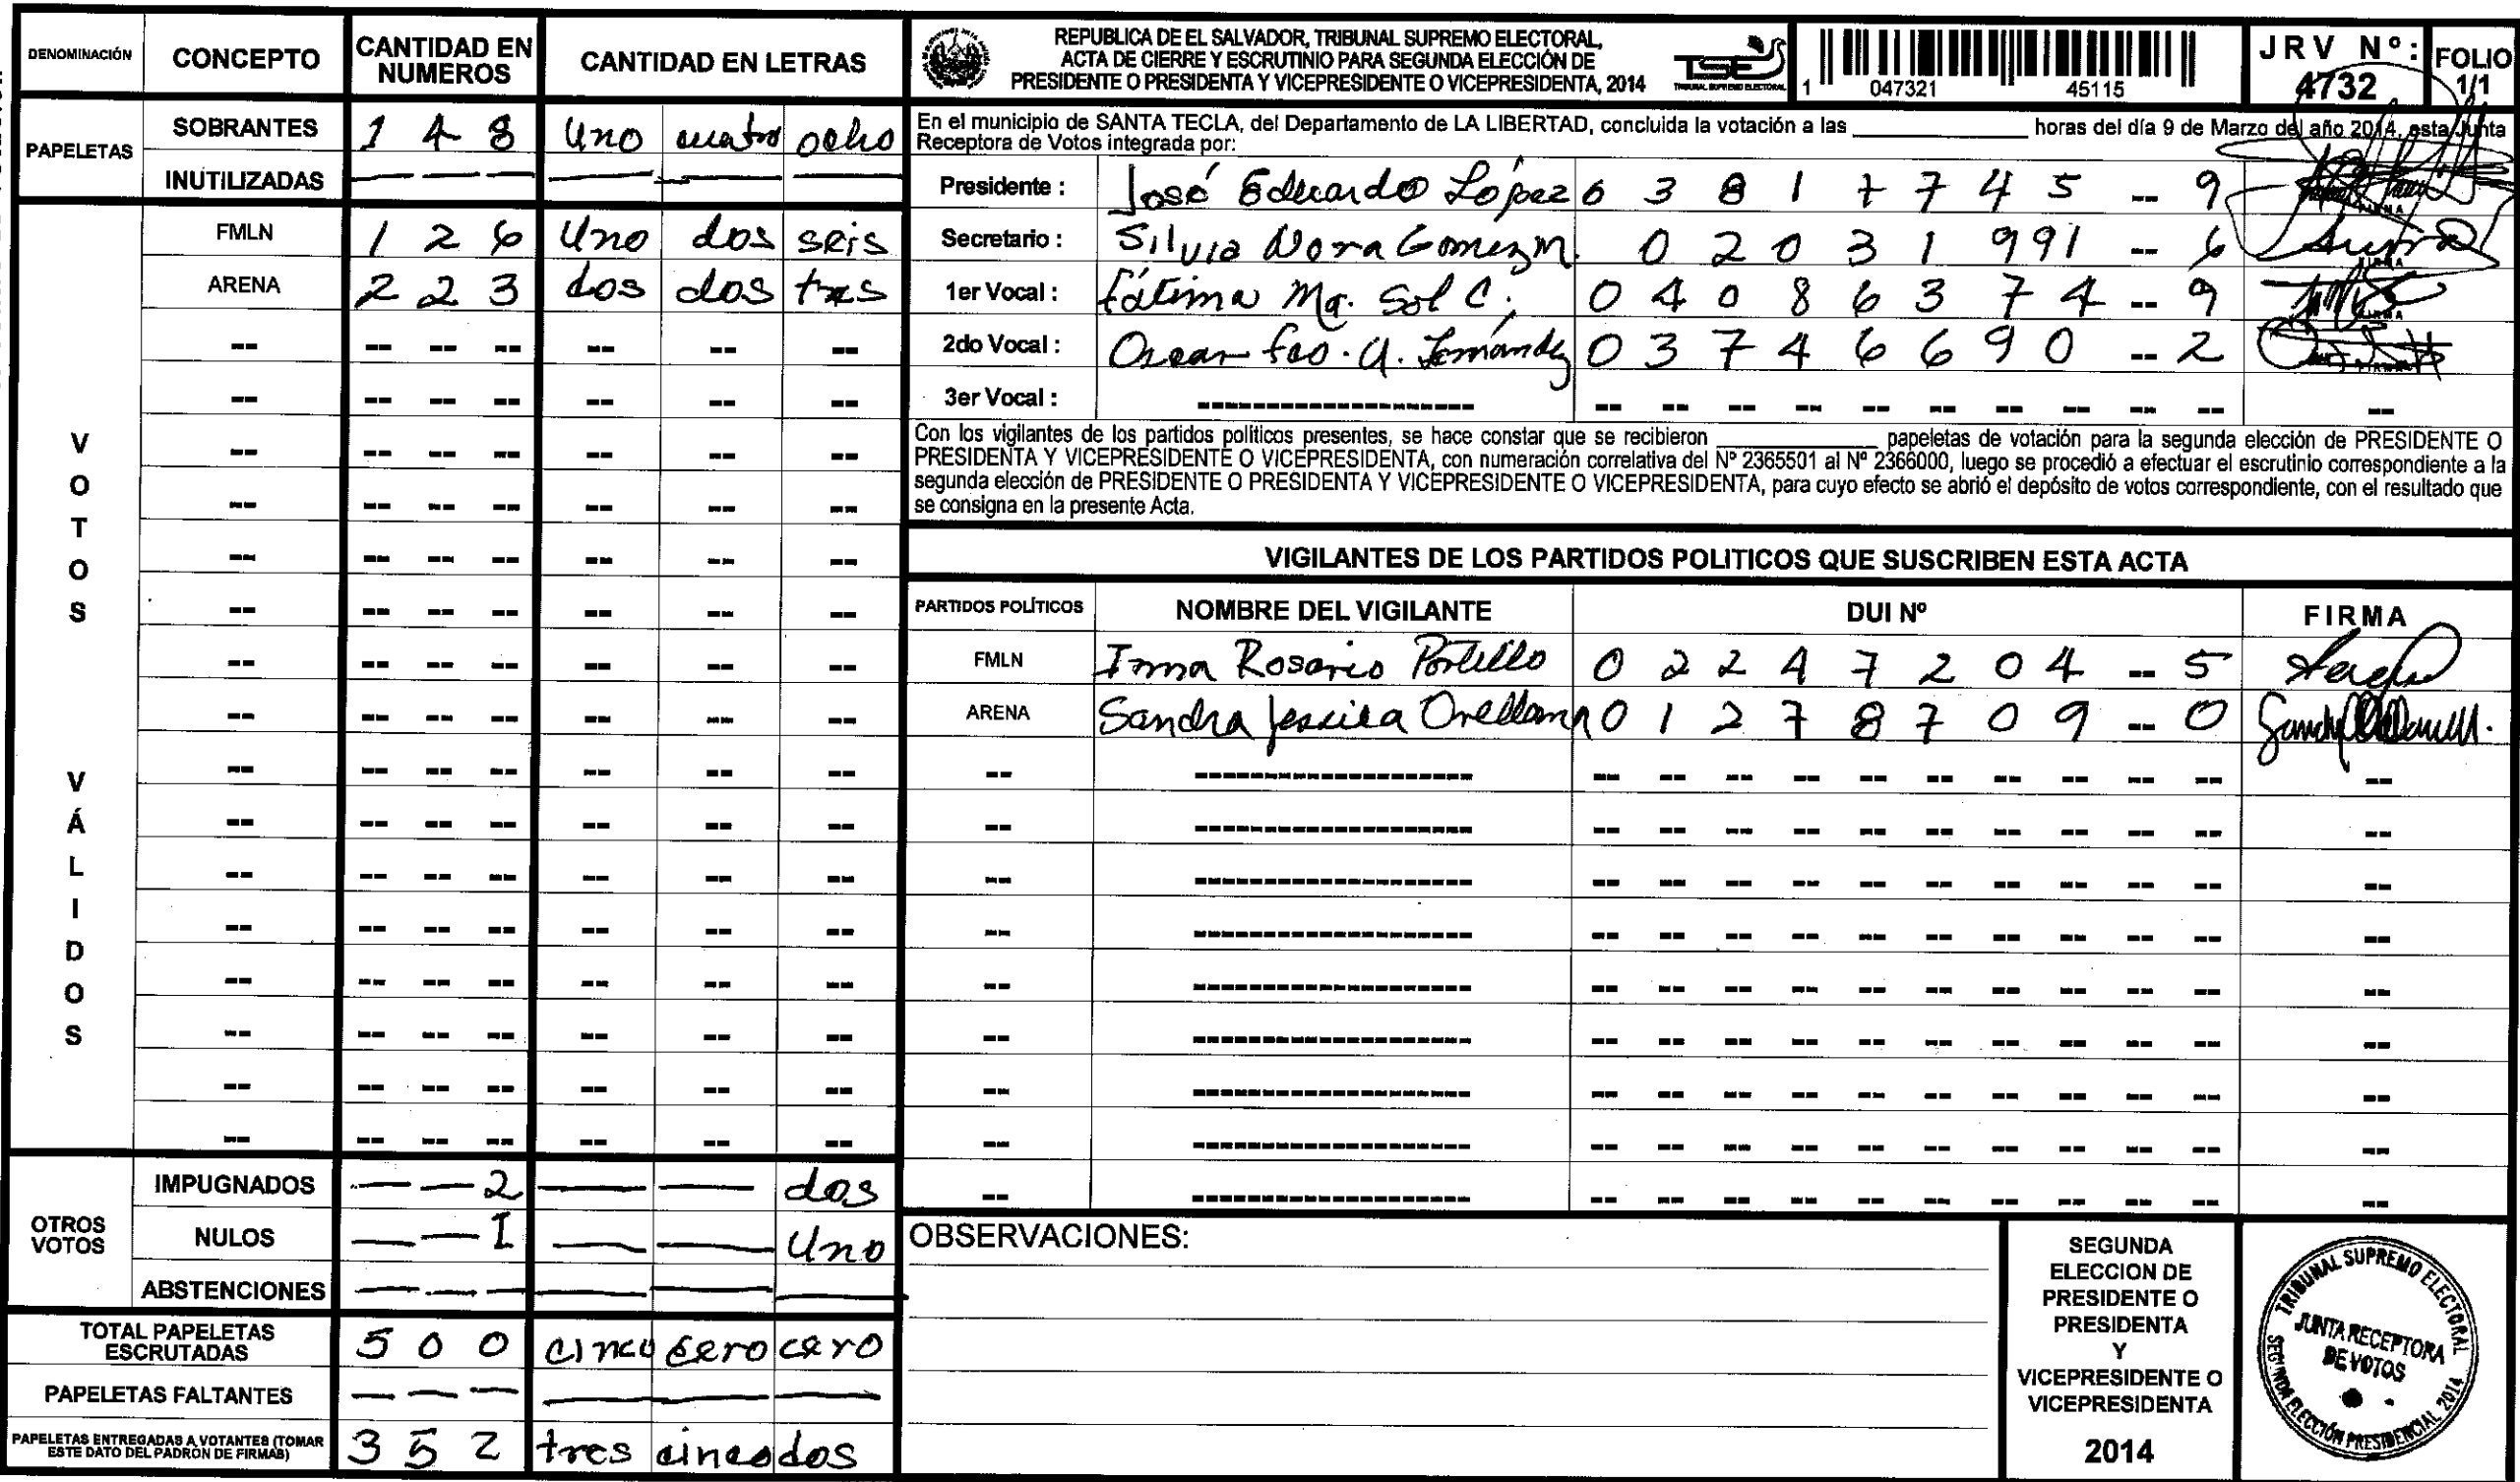 DENOMINACIÓN CONCEPTO CANTIDAD EN NUMEROS CANTIDAD EN LETRAS
PAPELETAS
SOBRANTES 1 4 8 Uno cuatro ocho
INUTILIZADAS — — — — — —
VOTOS VÁLIDOS
FMLN 1 2 6 Uno dos seis
ARENA 2 2 3 dos dos tres
OTROS VOTOS
IMPUGNADOS — — 2 — — dos
NULOS — — 1 — — Uno
ABSTENCIONES — — — — — —
TOTAL PAPELETAS ESCRUTADAS 5 0 0 cinco cero cero
PAPELETAS FALTANTES — — — — — —
PAPELETAS ENTREGADAS A VOTANTES (TOMAR ESTE DATO DEL PADRÓN DE FIRMAS) 3 5 2 tres cinco dos
REPUBLICA DE EL SALVADOR, TRIBUNAL SUPREMO ELECTORAL,
ACTA DE CIERRE Y ESCRUTINIO PARA SEGUNDA ELECCIÓN DE
PRESIDENTE O PRESIDENTA Y VICEPRESIDENTE O VICEPRESIDENTA, 2014
TSE
TRIBUNAL SUPREMO ELECTORAL
1 047321 45115
JRV Nº: 4732
FOLIO 1/1
En el municipio de SANTA TECLA, del Departamento de LA LIBERTAD, concluida la votación a las ________ horas del día 9 de Marzo del año 2014, esta Junta
Receptora de Votos integrada por:
Presidente : José Eduardo López 0 3 8 1 7 7 4 5 -- 9
Secretario : Silvia Nora Gomez M. 0 2 0 3 1 9 9 1 -- 6
1er Vocal : Fátima Ma. Sol C. 0 4 0 8 6 3 7 4 -- 9
2do Vocal : Oscar Fco. A. 0 3 7 4 6 6 9 0 -- 2
3er Vocal :
Con los vigilantes de los partidos politicos presentes, se hace constar que se recibieron ________ papeletas de votación para la segunda elección de PRESIDENTE O
PRESIDENTA Y VICEPRESIDENTE O VICEPRESIDENTA, con numeración correlativa del Nº 2365501 al Nº 2366000, luego se procedió a efectuar el escrutinio correspondiente a la
segunda elección de PRESIDENTE O PRESIDENTA Y VICEPRESIDENTE O VICEPRESIDENTA, para cuyo efecto se abrió el depósito de votos correspondiente, con el resultado que
se consigna en la presente Acta.
VIGILANTES DE LOS PARTIDOS POLITICOS QUE SUSCRIBEN ESTA ACTA
PARTIDOS POLÍTICOS NOMBRE DEL VIGILANTE DUI Nº FIRMA
FMLN Irma Rosario Portillo 0 2 2 4 7 2 0 4 -- 5
ARENA Sandra Jessica Orellana 0 1 2 7 8 7 0 9 -- 0
OBSERVACIONES:
SEGUNDA
ELECCION DE
PRESIDENTE O
PRESIDENTA
Y
VICEPRESIDENTE O
VICEPRESIDENTA
2014
TRIBUNAL SUPREMO ELECTORAL
JUNTA RECEPTORA
DE VOTOS
SEGUNDA ELECCIÓN PRESIDENCIAL 2014